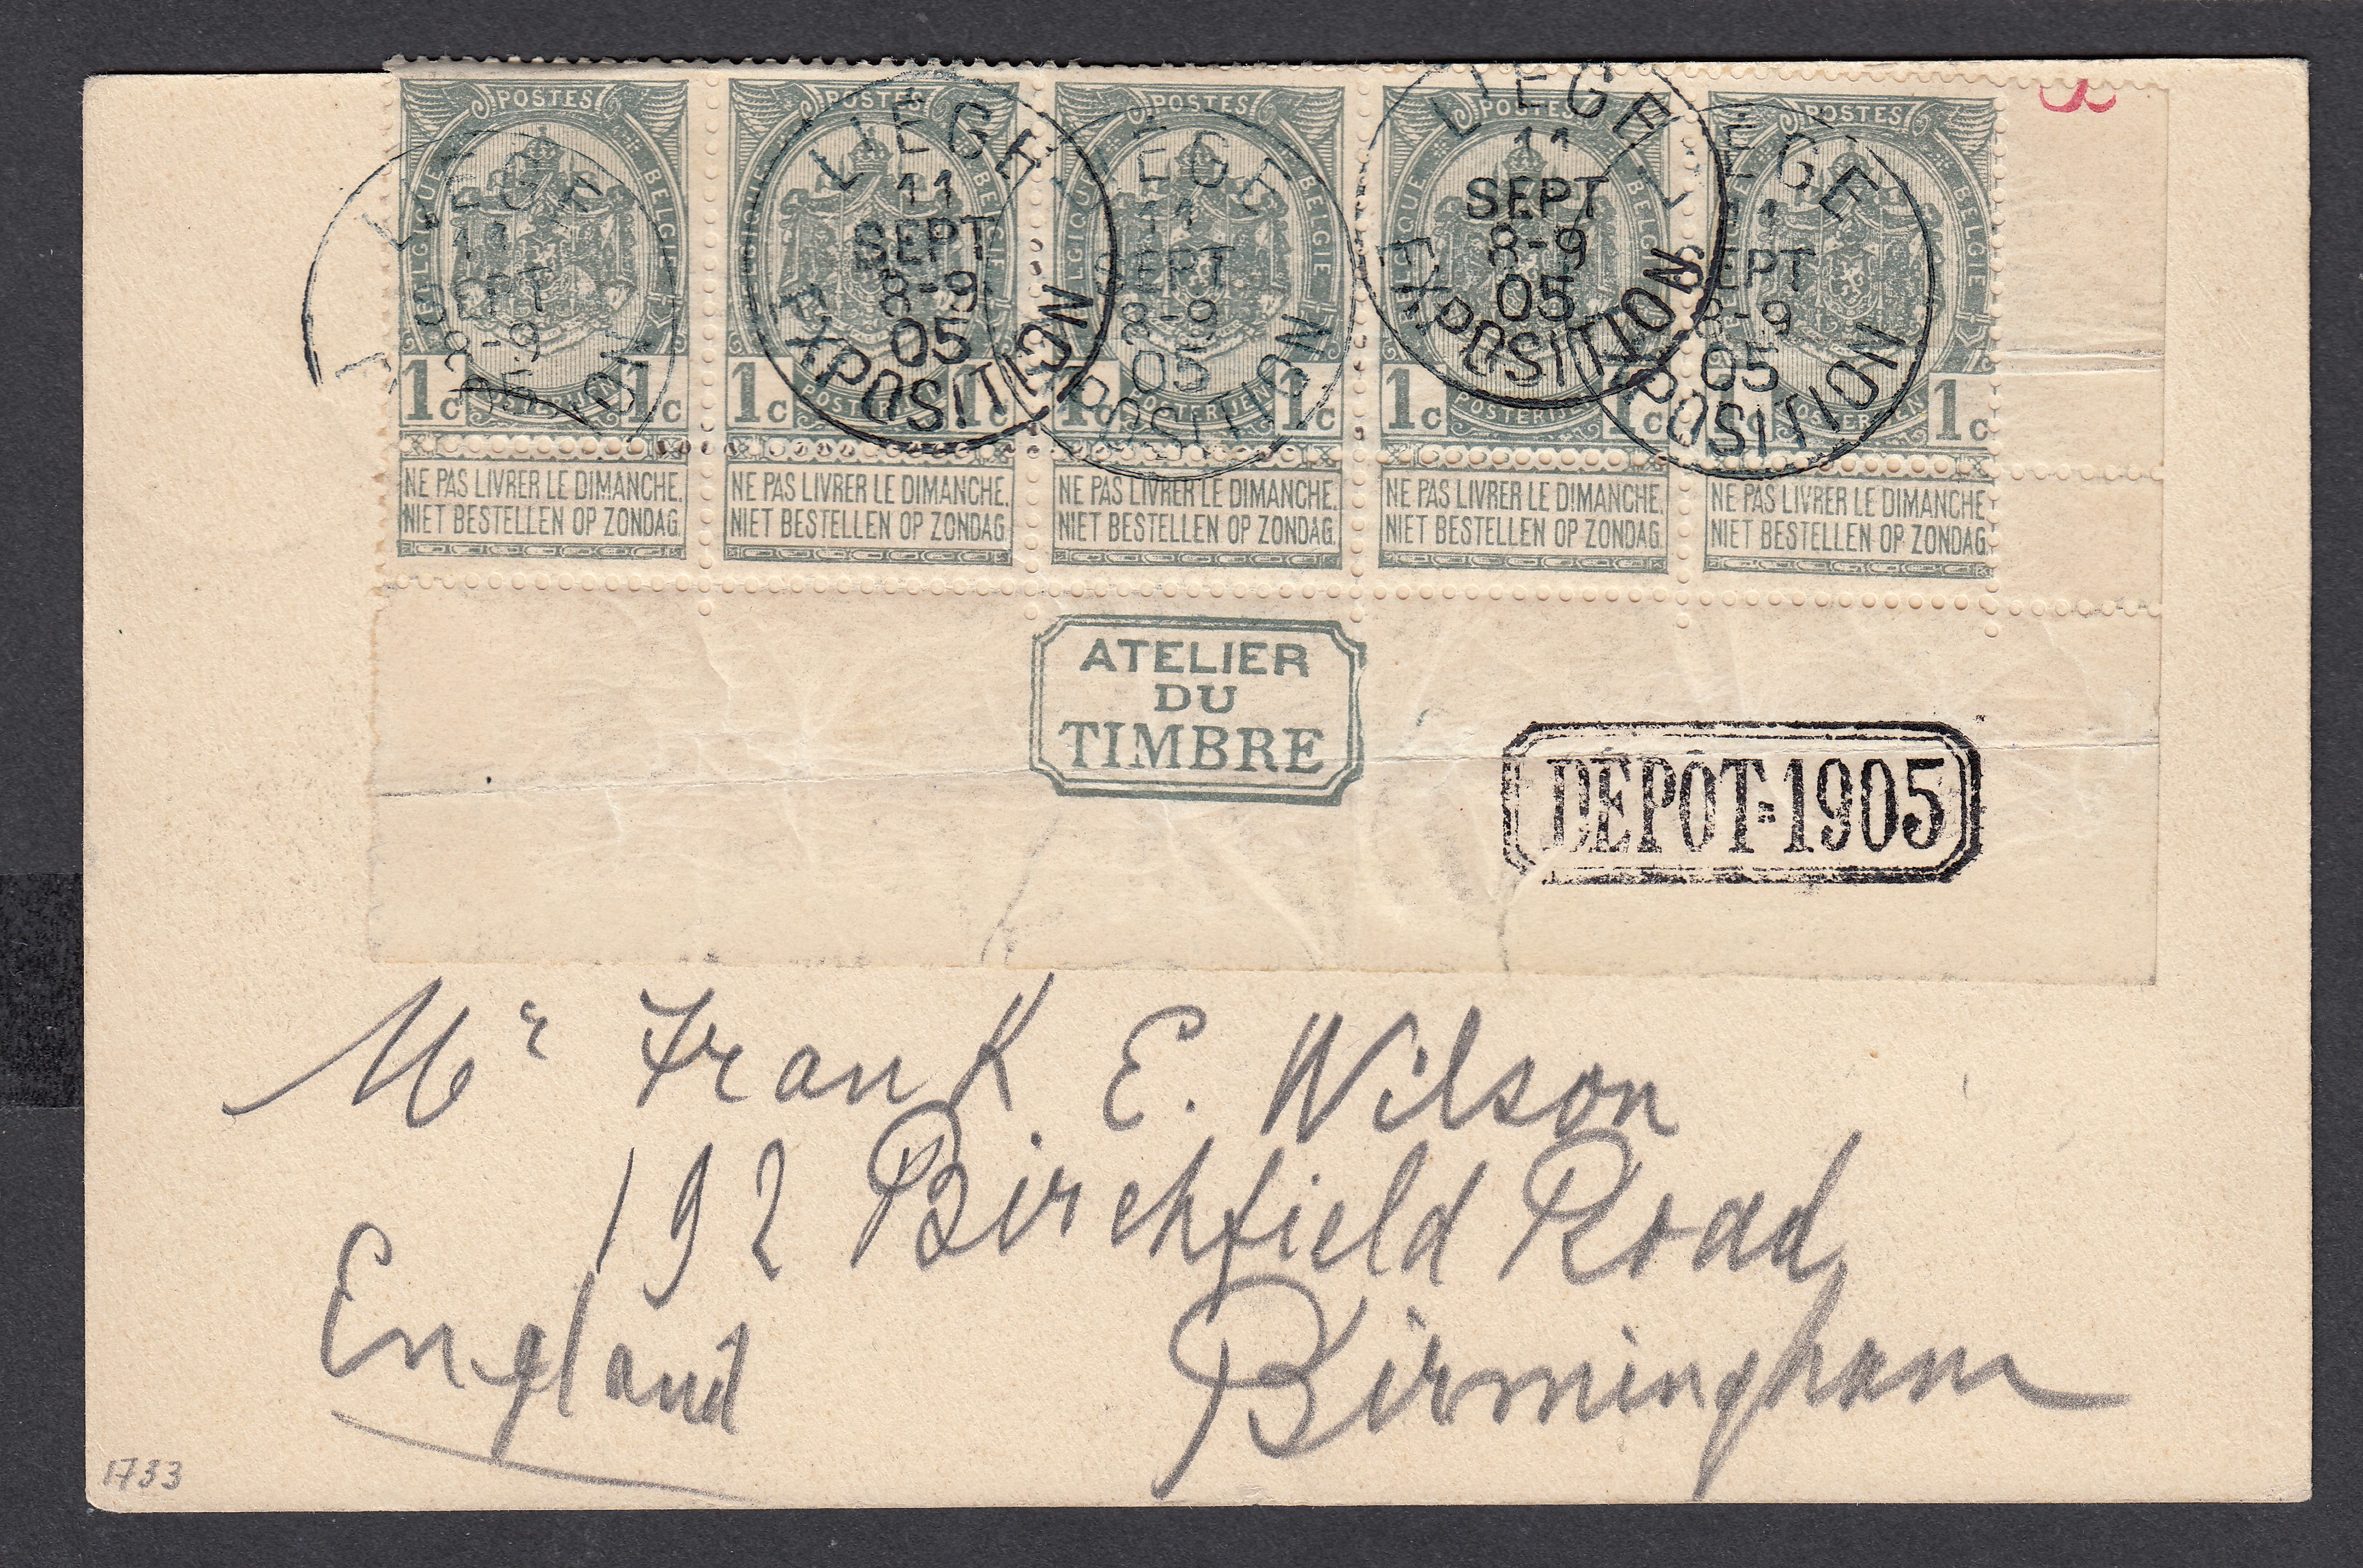 POSTES POSTES POSTES POSTES POSTES
BELGIQUE BELGIE BELGIQUE BELGIE BELGIQUE BELGIE BELGIQUE BELGIE BELGIQUE BELGIE
LIEGE 11 SEPT 8-9 05 EXPOSITION
LIEGE 11 SEPT 8-9 05 EXPOSITION
LIEGE 11 SEPT 8-9 05 EXPOSITION
LIEGE 11 SEPT 8-9 05 EXPOSITION
LIEGE 11 SEPT 8-9 05 EXPOSITION
1c 1c 1c 1c 1c 1c 1c 1c 1c 1c
POSTERIJEN POSTERIJEN POSTERIJEN POSTERIJEN POSTERIJEN
NE PAS LIVRER LE DIMANCHE. NE PAS LIVRER LE DIMANCHE. NE PAS LIVRER LE DIMANCHE. NE PAS LIVRER LE DIMANCHE. NE PAS LIVRER LE DIMANCHE.
NIET BESTELLEN OP ZONDAG. NIET BESTELLEN OP ZONDAG. NIET BESTELLEN OP ZONDAG. NIET BESTELLEN OP ZONDAG. NIET BESTELLEN OP ZONDAG.
ATELIER
DU
TIMBRE
DÉPÔT-1905
Mr Frank E. Wilson
192 Birchfield Road,
Birmingham
England
1733